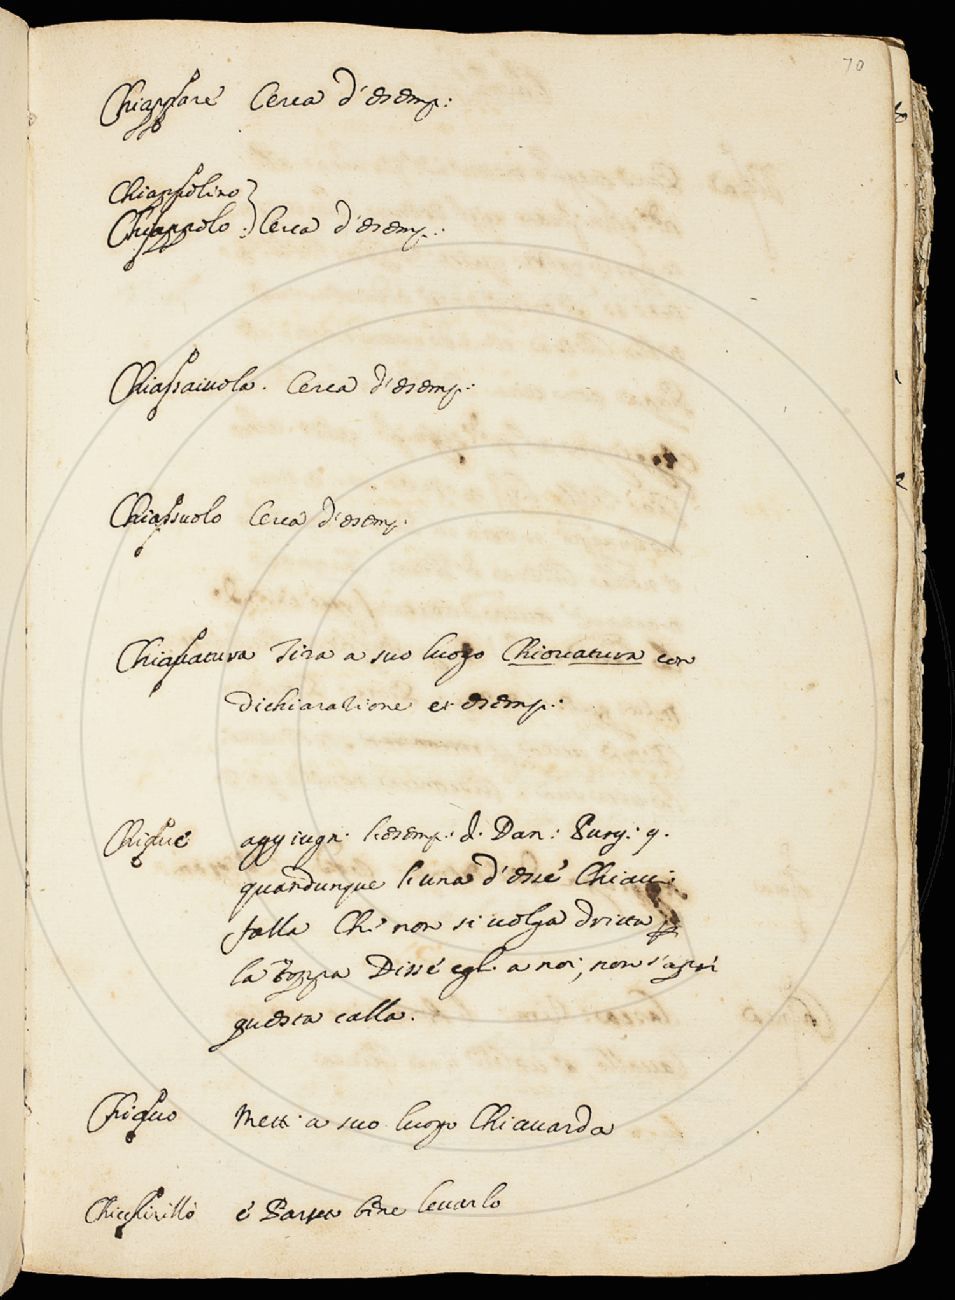 70
Chiappare Cerca d'esemp:
Chiappolino
Chiappolo : Cerca d'esemp:
Chiassaiuola. Cerca d'esemp:
Chiassuolo Cerca d'esemp:
Tira a suo luogo Chiovatura con
dichiarazione et esemp:
Chiave aggiugn: l'esemp: d. Dan: Purg: 9.
quandunque l'una d'este Chiavi
falla Che non si volga dritta p
la toppa Diss'egli a noi, non s'apri
questa calla.
Metti a suo luogo Chiavarda
é Parsa bene levarlo